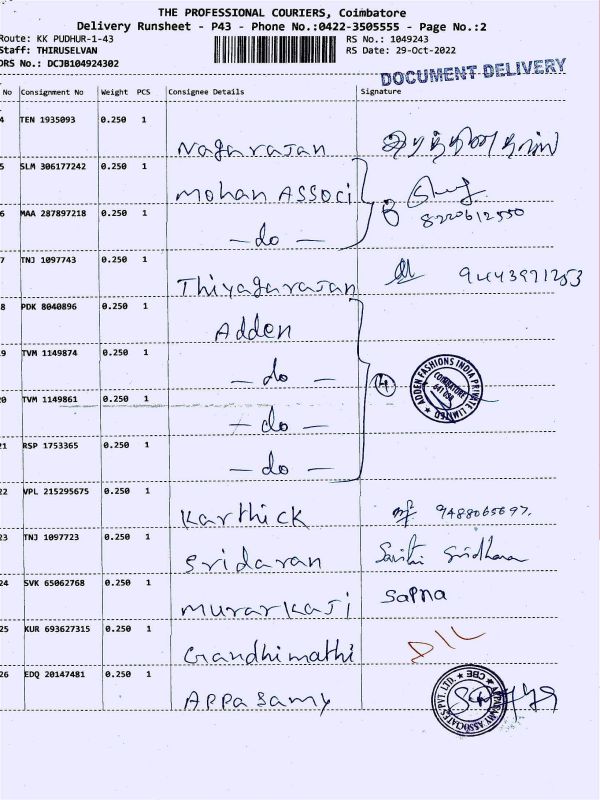 THE PROFESSIONAL COURIERS, Coimbatore
Delivery Runsheet - P43 - Phone No.:0422-3505555 - Page No.:2
Route: KK PUDHUR-1-43 RS No.: 1049243
Staff: THIRUSELVAN RS Date: 29-Oct-2022
DRS No.: DCJB104924302
DOCUMENT DELIVERY
No Consignment No Weight PCS Consignee Details Signature
4 TEN 1935093 0.250 1
Nagarajan
5 SLM 306177242 0.250 1
Mohan Associ
6 MAA 287897218 0.250 1 8220612550
— do —
7 TNJ 1097743 0.250 1
Thiyagarajan 9443971253
8 PDK 8040896 0.250 1
Adden
9 TVM 1149874 0.250 1
— do — 4
ADDEN FASHIONS INDIA PRIVATE LIMITED
COIMBATORE
641 038
20 TVM 1149861 0.250 1
— do —
21 RSP 1753365 0.250 1
— do —
22 VPL 215295675 0.250 1
Karthick 9488065697.
23 TNJ 1097723 0.250 1
Sridaran
24 SVK 65062768 0.250 1
Murarkaji Sapna
25 KUR 693627315 0.250 1
Gandhimathi D/L
26 EDQ 20147481 0.250 1
Appasamy
APPASAMY ASSOCIATES PVT. LTD. CBE